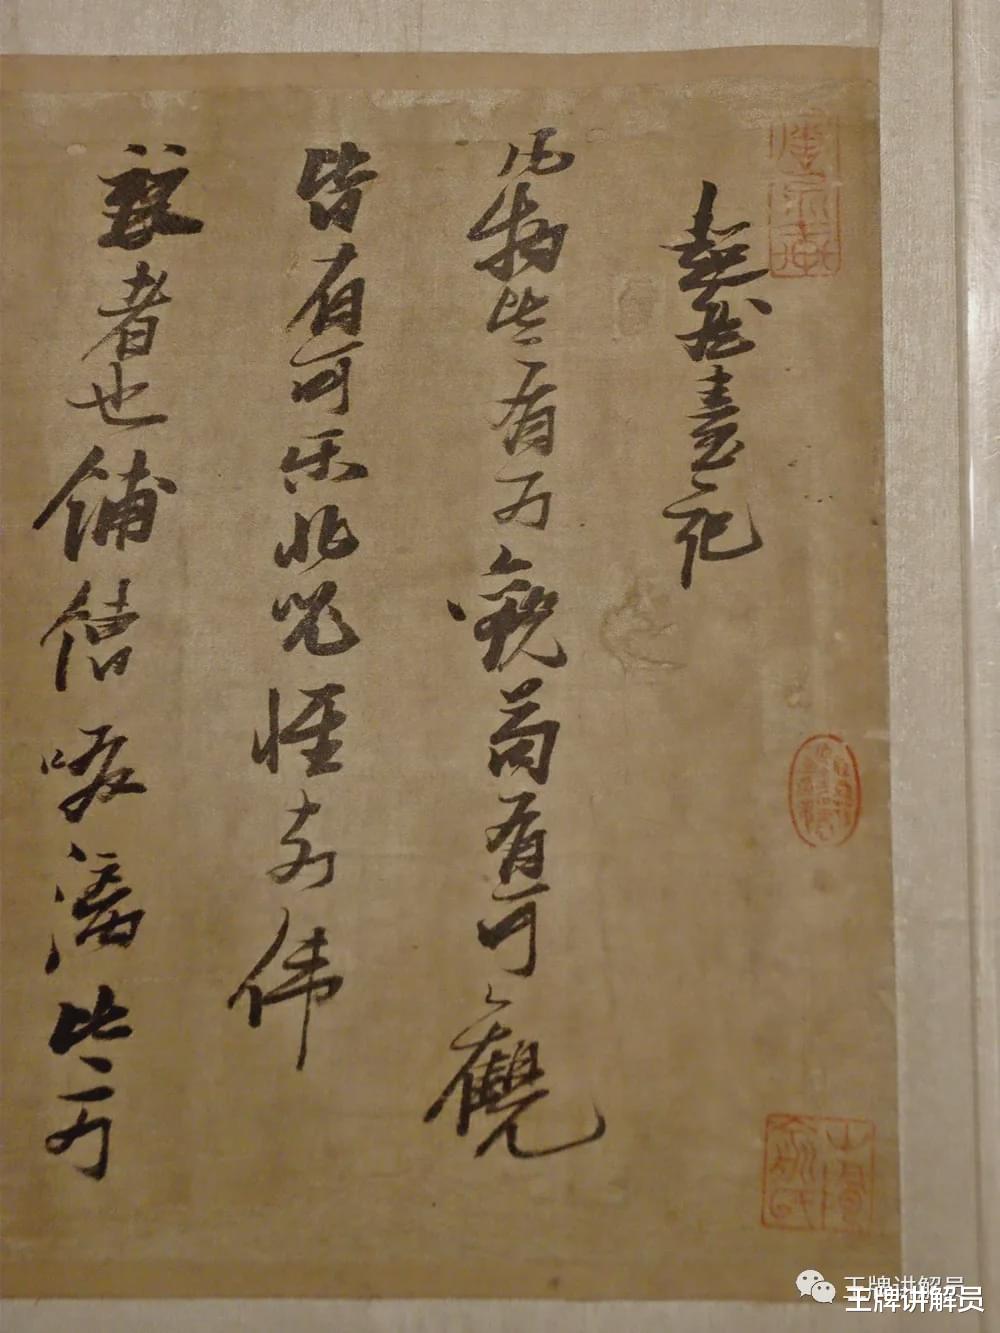 超然臺記
凡物皆有可觀苟有可觀
皆有可樂非怪奇偉
麗者也餔糟啜漓皆可
王牌讲解员
王牌讲解员